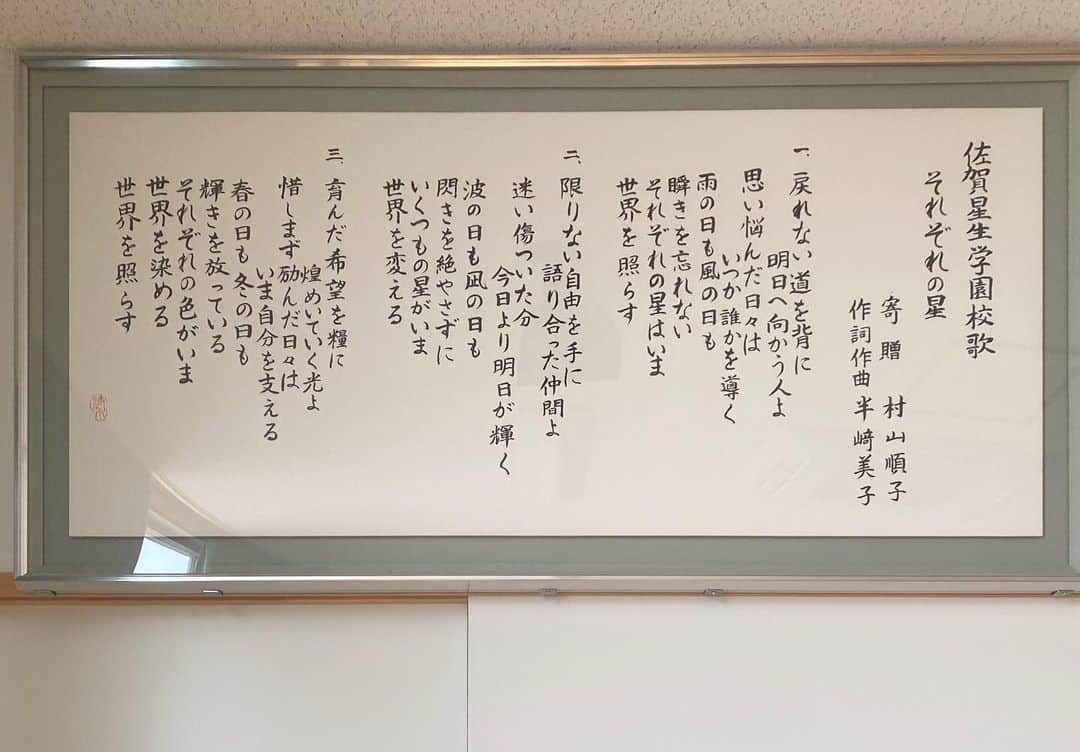 佐賀星生学園校歌
それぞれの星
寄贈 村山順子
作詞作曲 半﨑美子
一、戻れない道を背に
明日へ向かう人よ
思い悩んだ日々は
いつか誰かを導く
雨の日も風の日も
瞬きを忘れない
それぞれの星はいま
世界を照らす
二、限りない自由を手に
語り合った仲間よ
迷い傷ついた分
今日より明日が輝く
波の日も凪の日も
閃きを絶やさずに
いくつもの星がいま
世界を変える
三、育んだ希望を糧に
煌めいていく光よ
惜しまず励んだ日々は
いま自分を支える
春の日も冬の日も
輝きを放っている
それぞれの色がいま
世界を染める
世界を照らす